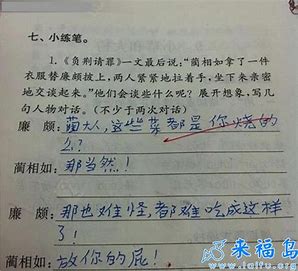 七、小练笔。
1.《负荆请罪》一文最后说："蔺相如拿了一件
衣服替廉颇披上，两人紧紧地拉着手，坐下来亲密
地交谈起来。"他们会谈些什么呢？展开想象，写几
句人物对话。（不少于两次对话）
廉 颇：蔺大人，这些菜都是你烧的
么？
蔺相如：那当然！
廉 颇：那也难怪，都难吃成这样
了！
蔺相如：放你的屁！
来福岛
www.laifu.org